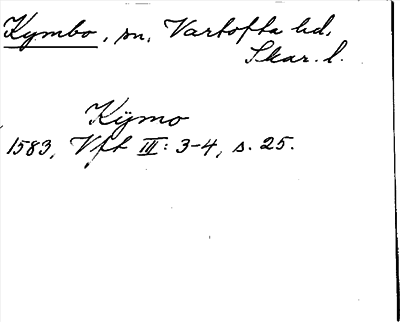 Kymbo, sn, Vartofta hd,
Skar. l.
Kÿmo
1583, Vft III: 3-4, s. 25.